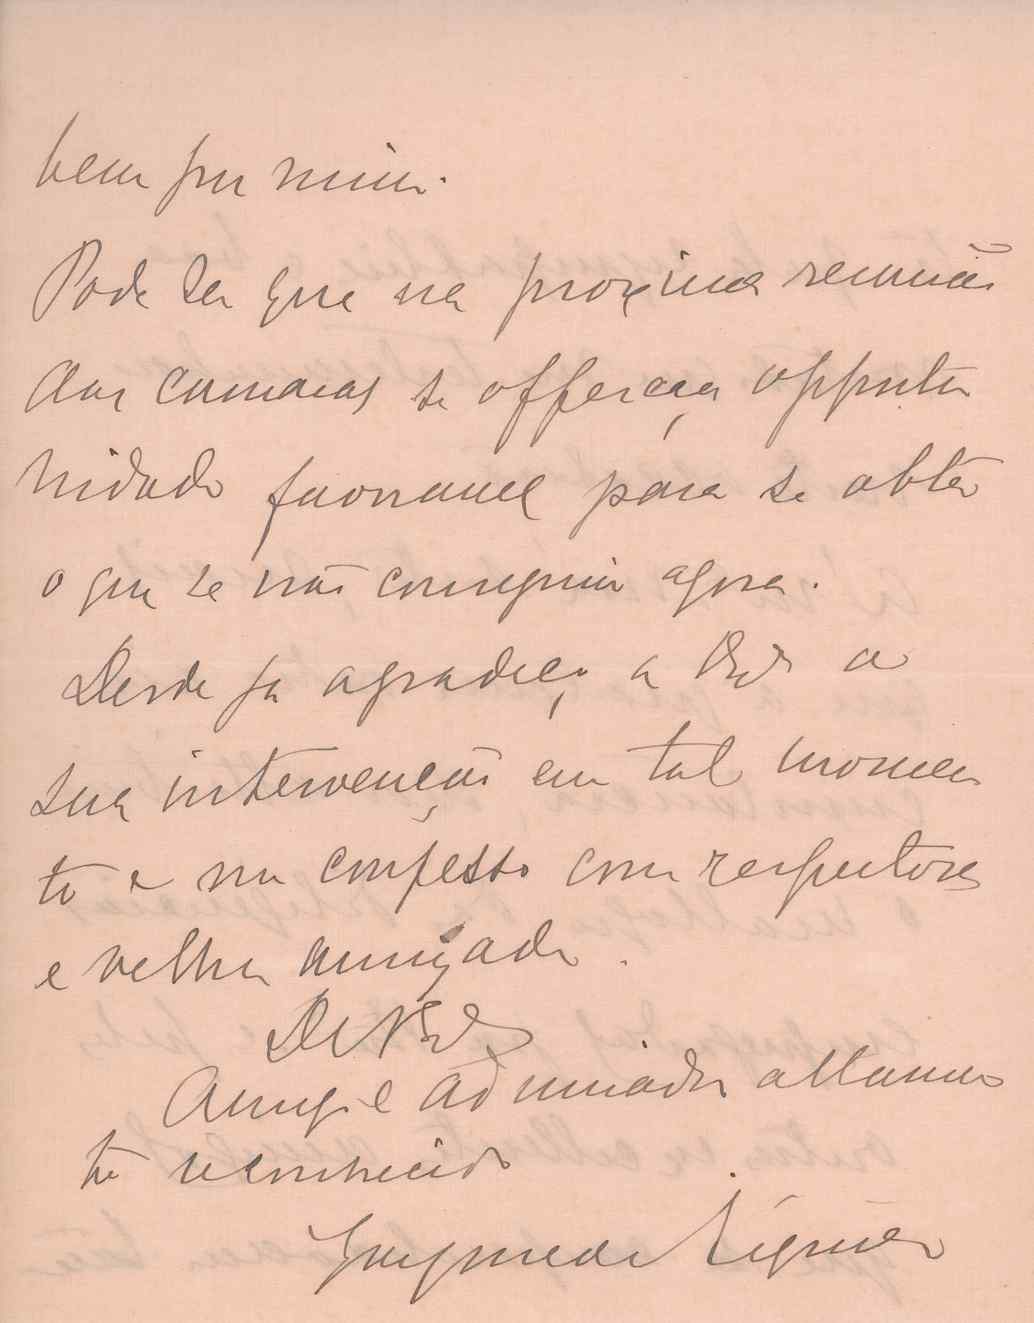 bem por mim.
Pode ser que na proxima reunião
das camaras se offereça opportu
nidade favoravel para se obter
o que se não conseguiu agora.
Desde ja agradeço a V. Exª a
sua intervenção em tal momen
to e me confesso com respeitosa
e velha amizade.
De V. Exª
Amigo e admirador altamen
te reconhecido